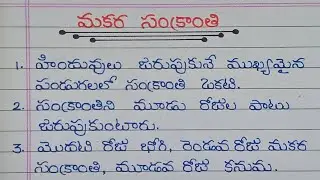 మకర సంక్రాంతి
1. హిందువులు జరుపుకునే ముఖ్యమైన
పండుగలలో సంక్రాంతి ఒకటి.
2. సంక్రాంతిని మూడు రోజుల పాటు
జరుపుకుంటారు.
3. మొదటి రోజు భోగి, రెండవ రోజు మకర
సంక్రాంతి, మూడవ రోజు కనుమ.